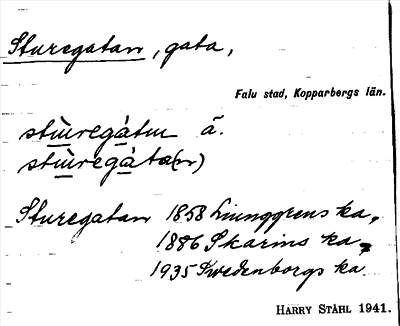 Sturegatan, gata,
Falu stad, Kopparbergs län.
stùregàtun ā.
stùregàta(n)
Sturegatan 1858 Ljunggrens ka,
1886 Skarins ka,
1935 Swedenborgs ka.
HARRY STÅHL 1941.